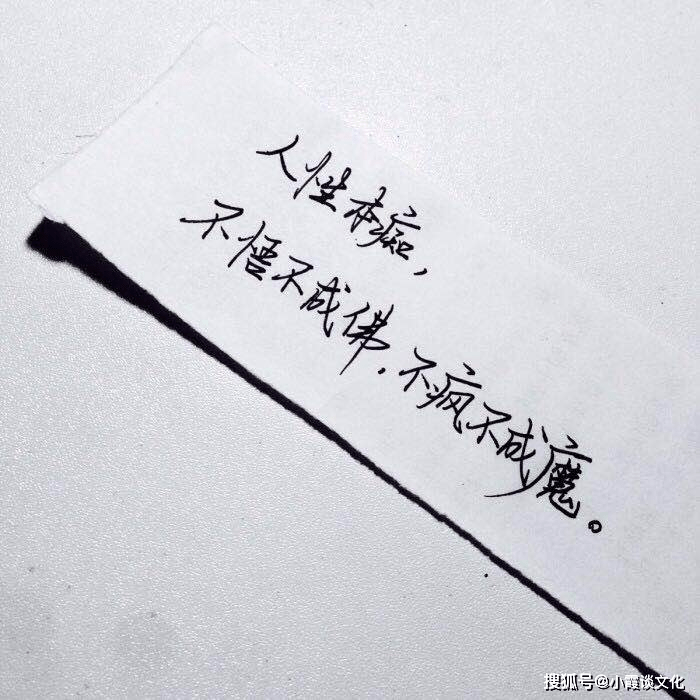 人性本痴，
不悟不成佛．不疯不成魔。
搜狐号@小霞谈文化